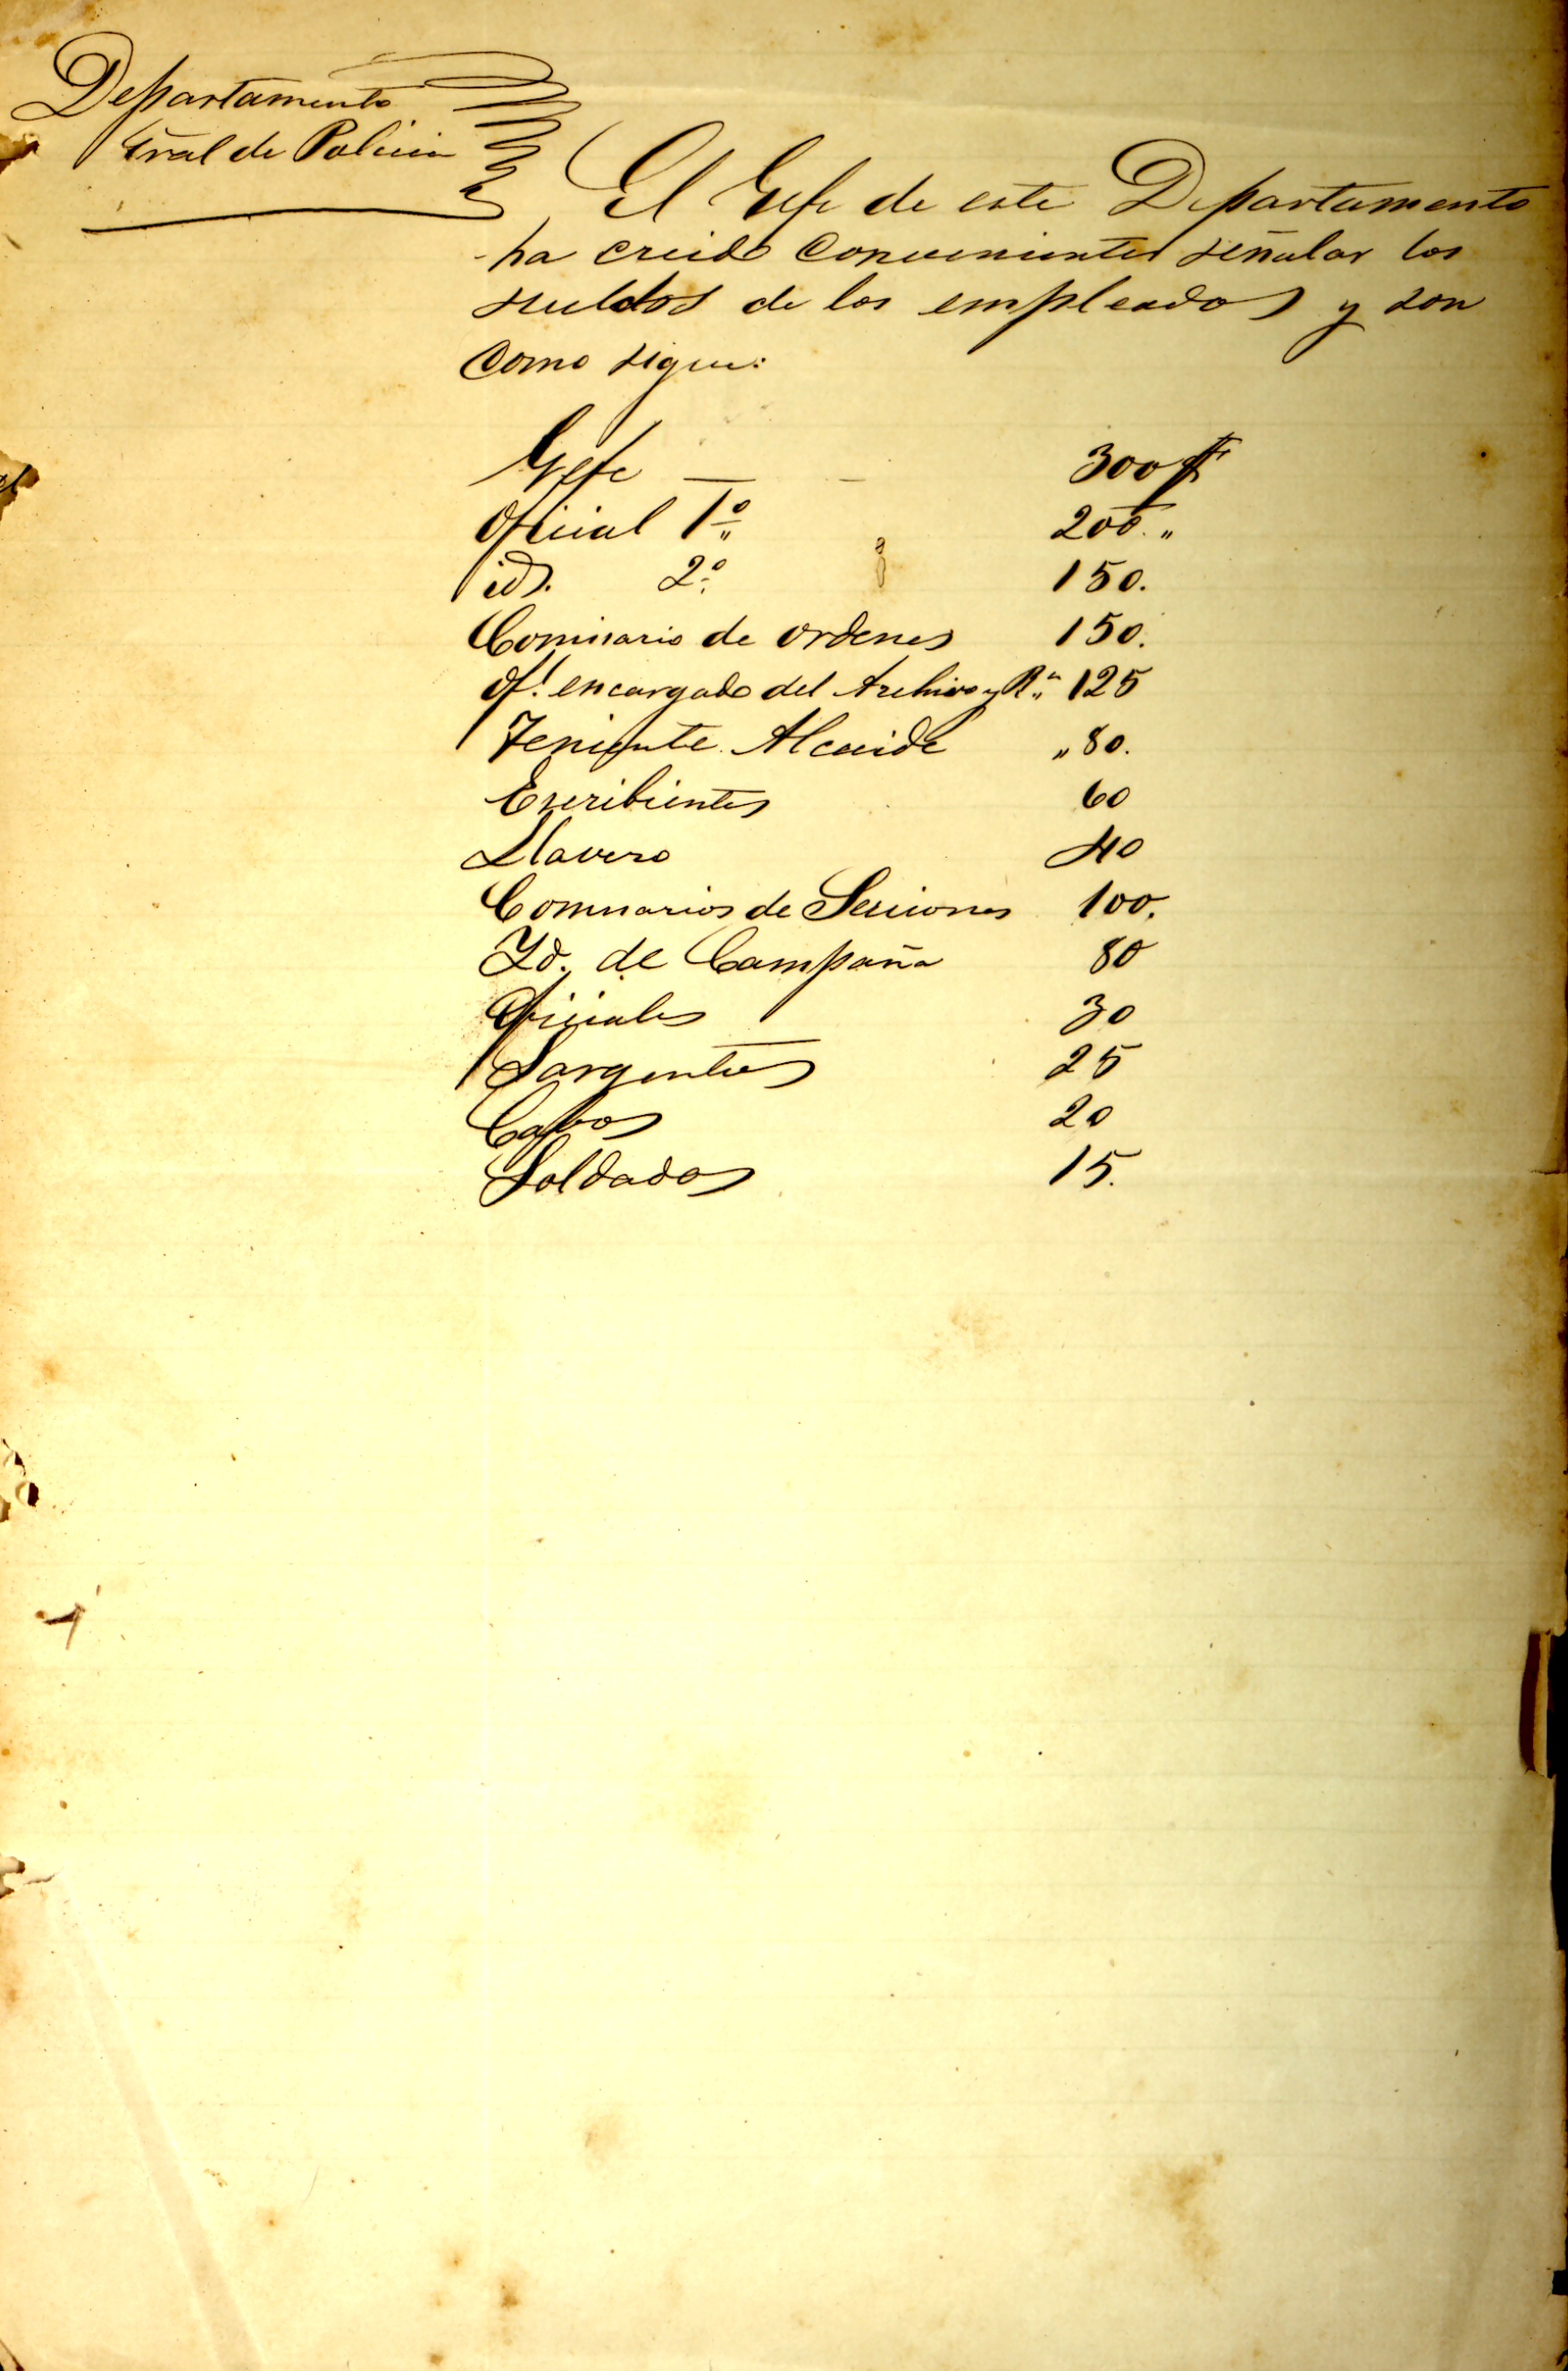 Departamento
Gral de Policia
El Gefe de este Departamento
ha creido conveniente señalar los
sueldos de los empleados y son
como sigue:
Gefe — - 300 $f
Oficial 1º 200. "
id. 2º 150.
Comisario de ordenes 150.
Of.l encargado del Archivo y 125
Teniente Alcaide " 80.
Escribientes 60
Llavero 40
Comisarios de Secciones 100.
Id. de Campaña 80
Oficiales 30
Sargentos 25
Cabos 20
Soldados 15.